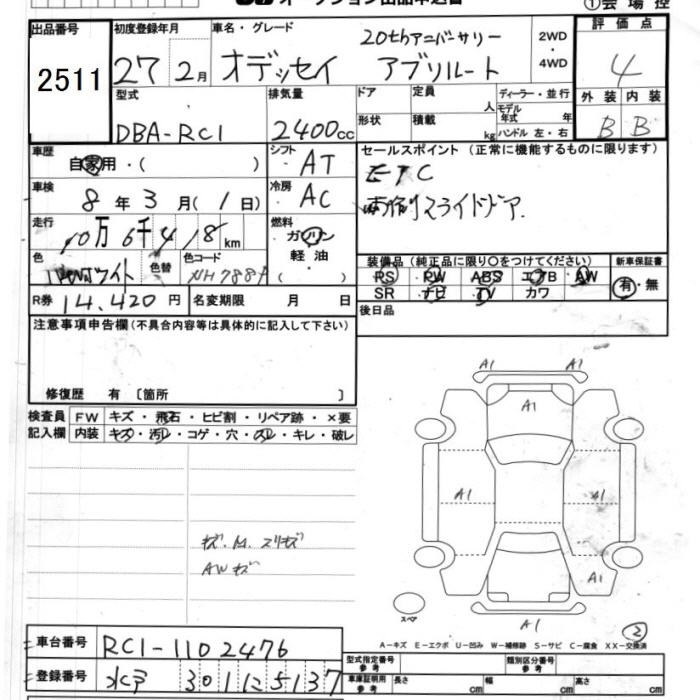 オークション出品申込書
①会場控
出品番号 初度登録年月 車名・グレード 評価点
2511
27 2月 オデッセイ 20thアニバーサリー アブソルート 2WD・4WD
4
型式 排気量 ドア 定員 人 ディーラー・並行 外装 内装
DBA-RC1 2400cc 形状 積載 kg モデル年式 年 ハンドル 左・右
B B
車歴 自家用・( ) シフト AT セールスポイント(正常に機能するものに限ります)
ETC
車検 8年3月(1日) 冷房 AC
両側スライドドア
走行 10万6千418km 燃料 ガソリン 軽油 ( )
装備品(純正品に限り○をつけてください) 新車保証書
色 ホワイト 色替 色コード NH788P
PS PW ABS エアB AW 有・無
SR ナビ TV カワ
R券 14,420円 名変期限 月 日
後日品
注意事項申告欄(不具合内容等は具体的に記入して下さい)
修復歴 有 〔箇所 〕
検査員記入欄 FW キズ・飛石・ヒビ割・リペア跡・×要
内装 キズ・汚レ・コゲ・穴・スレ・キレ・破レ
A1 A1
A1
A1 A1
A1
キズ.M.スリキズ
AWキズ
スペア
A1
2
A-キズ E-エクボ U-凹み W-補修跡 S-サビ C-腐食 XX-交換済
車台番号 RC1-1102476
型式指定番号 参考 類別区分番号 参考
登録番号 水戸 301 1 25137
車庫証明用 参考 長さ cm 幅 cm 高さ cm